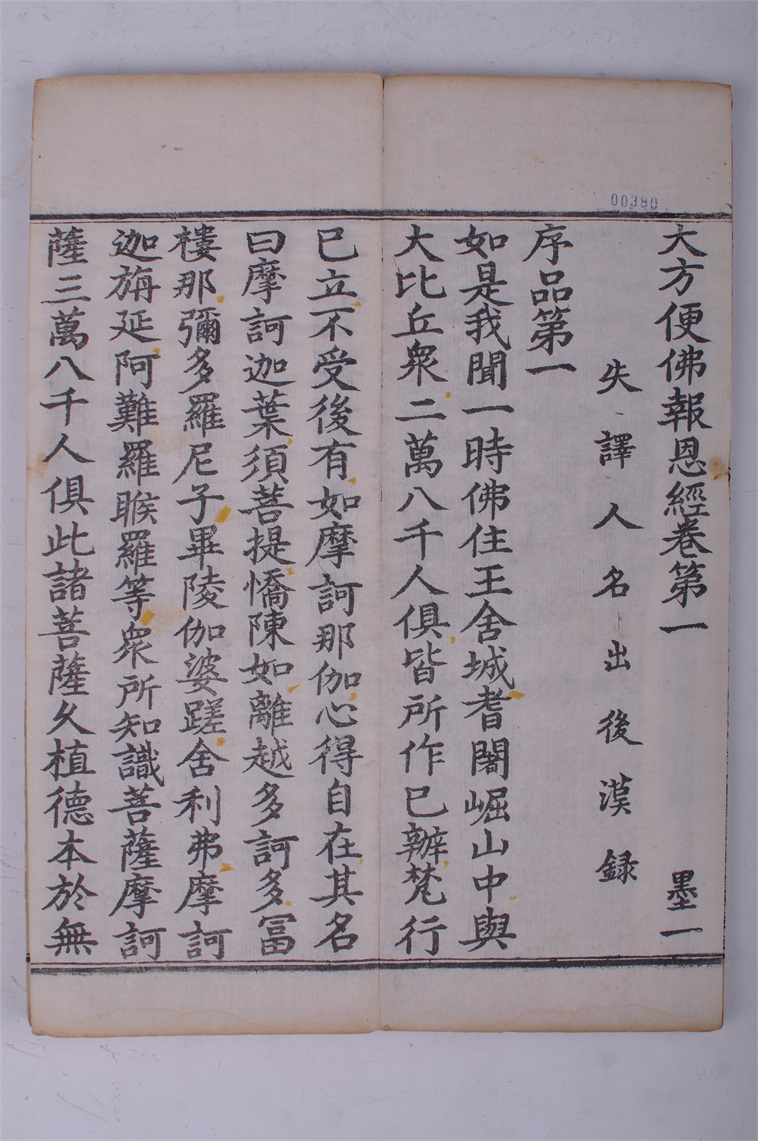 00380
大方便佛報恩經卷第一 墨一
失譯人名出後漢録
序品第一
如是我聞一時佛住王舍城耆闍崛山中與
大比丘衆二萬八千人俱皆所作已辦梵行
已立不受後有如摩訶那伽心得自在其名
曰摩訶迦葉須菩提憍陳如離越多訶多冨
樓那彌多羅尼子畢陵伽婆蹉舍利弗摩訶
迦旃延阿難羅睺羅等衆所知識菩薩摩訶
薩三萬八千人俱此諸菩薩久植德本於無